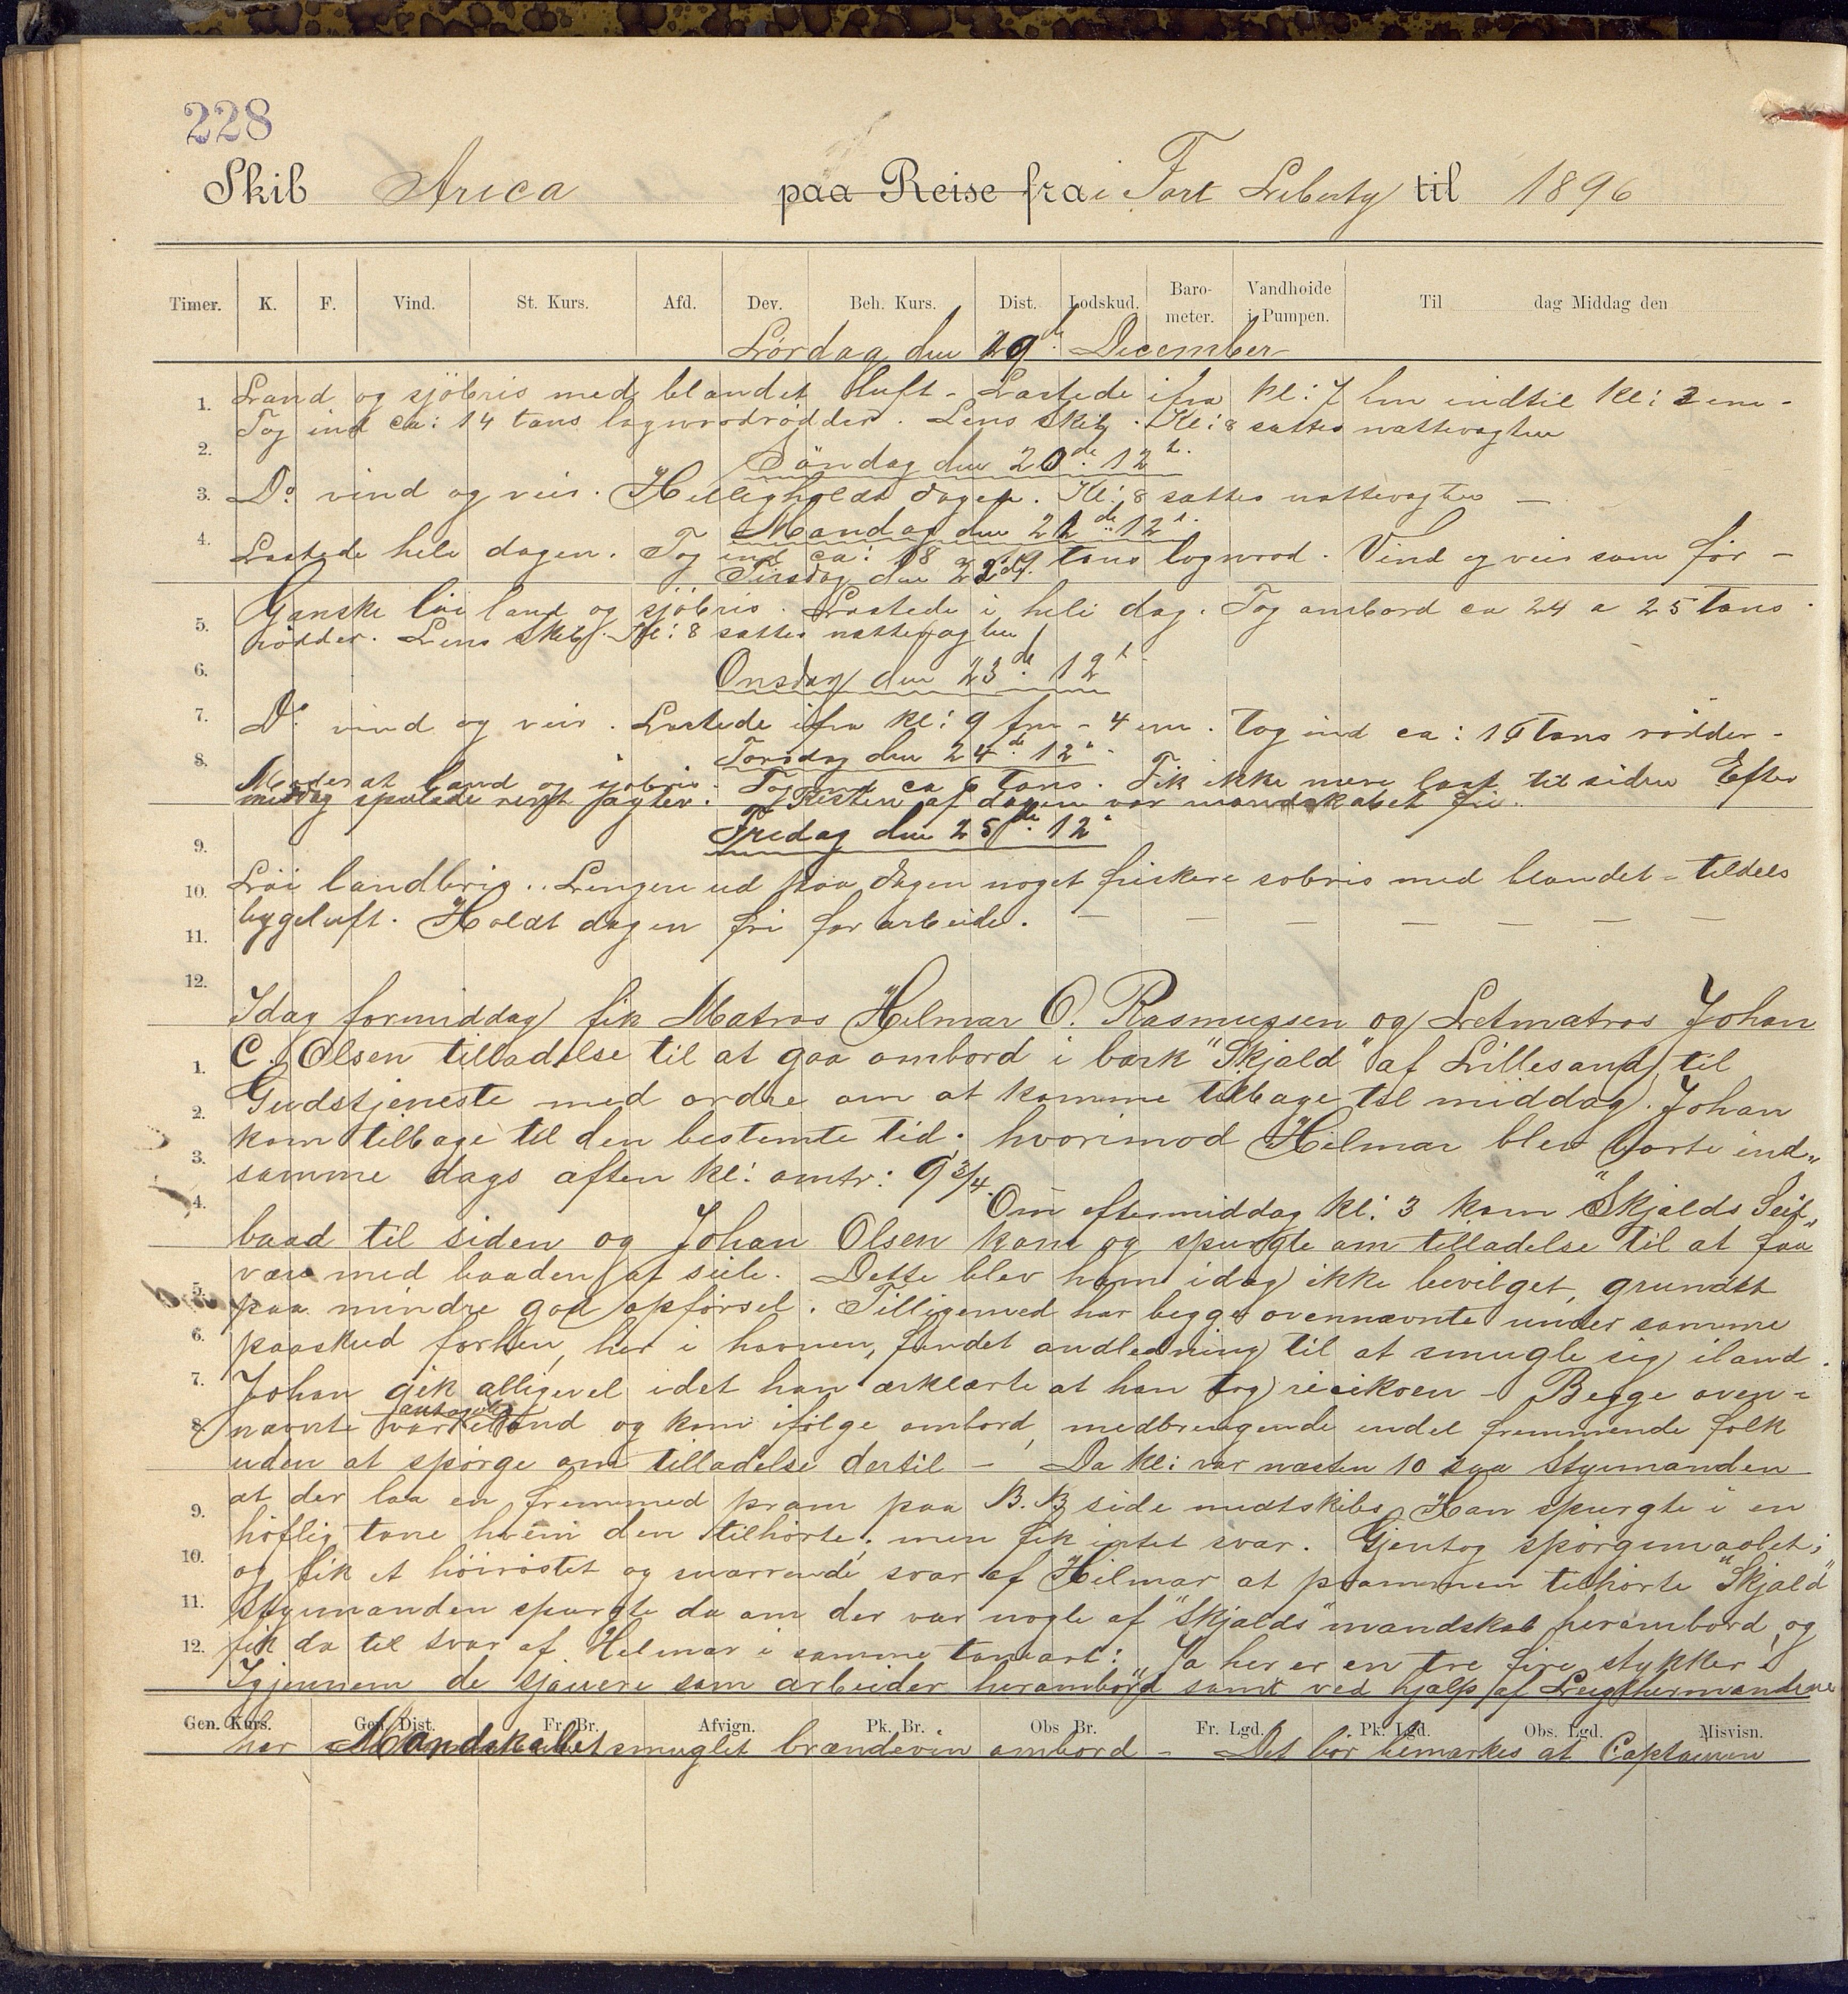 228
Skib Arica paa Reise fra i Fort Liberty til 1896
Timer. K. F. Vind. St. Kurs. Afd. Dev. Beh. Kurs. Dist. Lodskud. Baro-meter. Vandhoide i Pumpen. Til dag Middag den
Lørdag den 19de December
1. Land og sjöbris med blandet luft - Lastede ifra kl: 7 fm indtil kl: 3 em -
Tog ind ca: 14 tons logwoodrödder. Lens skib. Kl: 8 sattes nattevagten
2. Söndag den 20de 12t.
3. Do vind og veir. Helligholdt dagen. Kl: 8 sattes nattevagten —
Mandag den 21de 12t.
4. Lastede hele dagen. Tog ind ca: 18 a 19 tons logwood. Vind og veir som för -
Tirsdag den 22de
5. Ganske löi land og sjöbris. Lastede i hele dag. Tog ombord ca 24 a 25 tons
rödder. Lens skib. Kl: 8 sattes nattevagten
6. Onsdag den 23de 12t
7. Do vind og veir. Lastede ifra kl: 9 fm - 4 em. Tog ind ca: 15 tons rödder -
8. Torsdag den 24de 12t
Moderat land og sjöbris. Tog ind ca 6 tons. Fik ikke mere last til siden Efter
middag spulede rent Resten af dagen var mandskabet fri.
9. Fredag den 25de 12t
10. Löi landbris.. Lengere ud paa dagen noget friskere sobris med blandet - tildels
11. bygeluft. Holdt dagen fri for arbeide. — — — — — —
12. Idag formiddag fik Matros Hilmar O. Rasmussen og Letmatros Johan
1. C. Olsen tilladelse til at gaa ombord i bark "Skjald" af Lillesand, til
2. Gudstjeneste med ordre om at komme tilbage til middag. Johan
3. kom tilbage til den bestemte tid. hvorimod Hilmar blev borte ind„
samme dags aften kl: omtr: 9 3/4.
4. Om eftermiddag kl: 3 kom "Skjalds Seil„
baad til siden og Johan Olsen kom og spurgte om tilladelse til at faa
5. være med baaden at seile. Dette blev ham idag ikke bevilget, grundet
paa mindre god opförsel. Tilligemed har begge ovennævnte under samme
6. paaskud forhen, her i havnen, fundet andledning til at smugle sig iland.
7. Johan gik alligevel idet han ærklærte at han tog risikoen - Begge oven-
antagelig
8. nævnte var iland og kom ifölge ombord, medbringende endel fremmende folk
uden at spörge om tilladelse dertil - Da kl: var næsten 10 saa Styrmanden
9. at der laa en fremmed pram paa B.B side midtskibs. Han spurgte i en
höflig tone hvem den tilhörte; men fik intet svar. Gjentog spörgsmaalet;
10. og fik et höiröstet og snærrende svar af Hilmar at prammen tilhörte "Skjald"
11. Styrmanden spurgte da om der var nogle af "Skjalds" mandskab herombord, og
12. fik da til svar af Hilmar i samme toneart: Ja her er en tre fire stykker.
Igjennem de sjauere som arbeider herombord samt ved hjælp af Leigthermandene
Gen. Kurs. Gen. Dist. Fr. Br. Afvign. Pk. Br. Obs Br. Fr. Lgd. Pk. Lgd. Obs. Lgd. Misvisn.
har Mandskabet smuglet brændevin ombord - Det bör bemærkes at Captainen